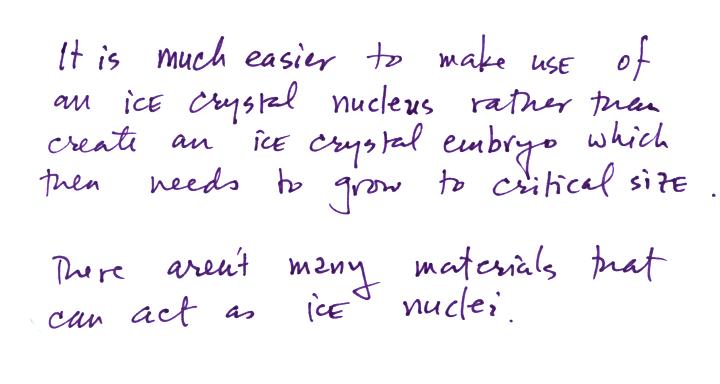 It is much easier to make use of
an ice crystal nucleus rather than
create an ice crystal embryo which
then needs to grow to critical size.
There aren't many materials that
can act as ice nuclei.